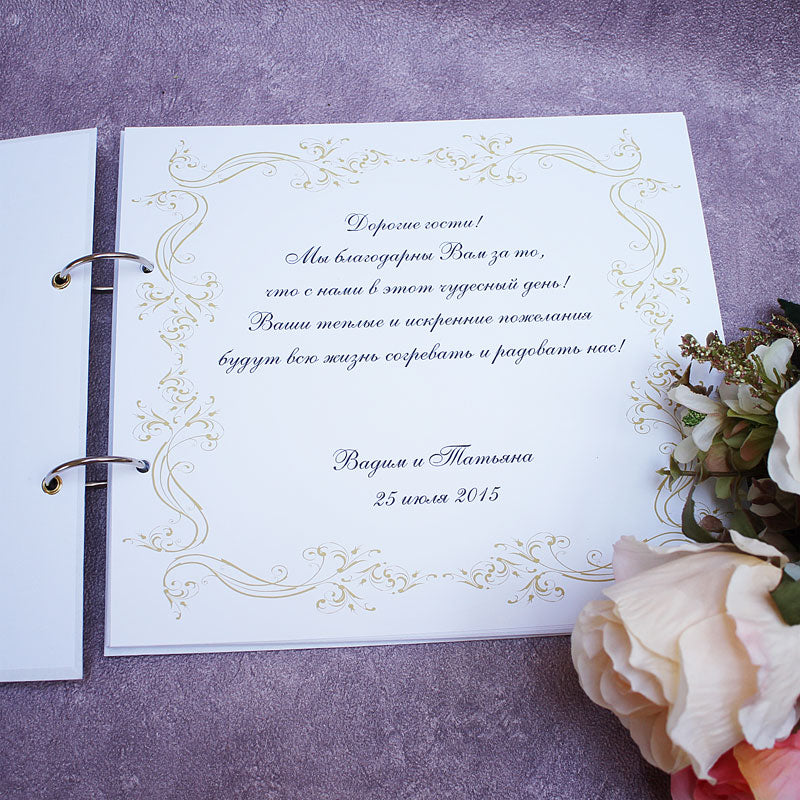 Дорогие гости!
Мы благодарны Вам за то,
что с нами в этот чудесный день!
Ваши теплые и искренние пожелания
будут всю жизнь согревать и радовать нас!
Вадим и Татьяна
25 июля 2015